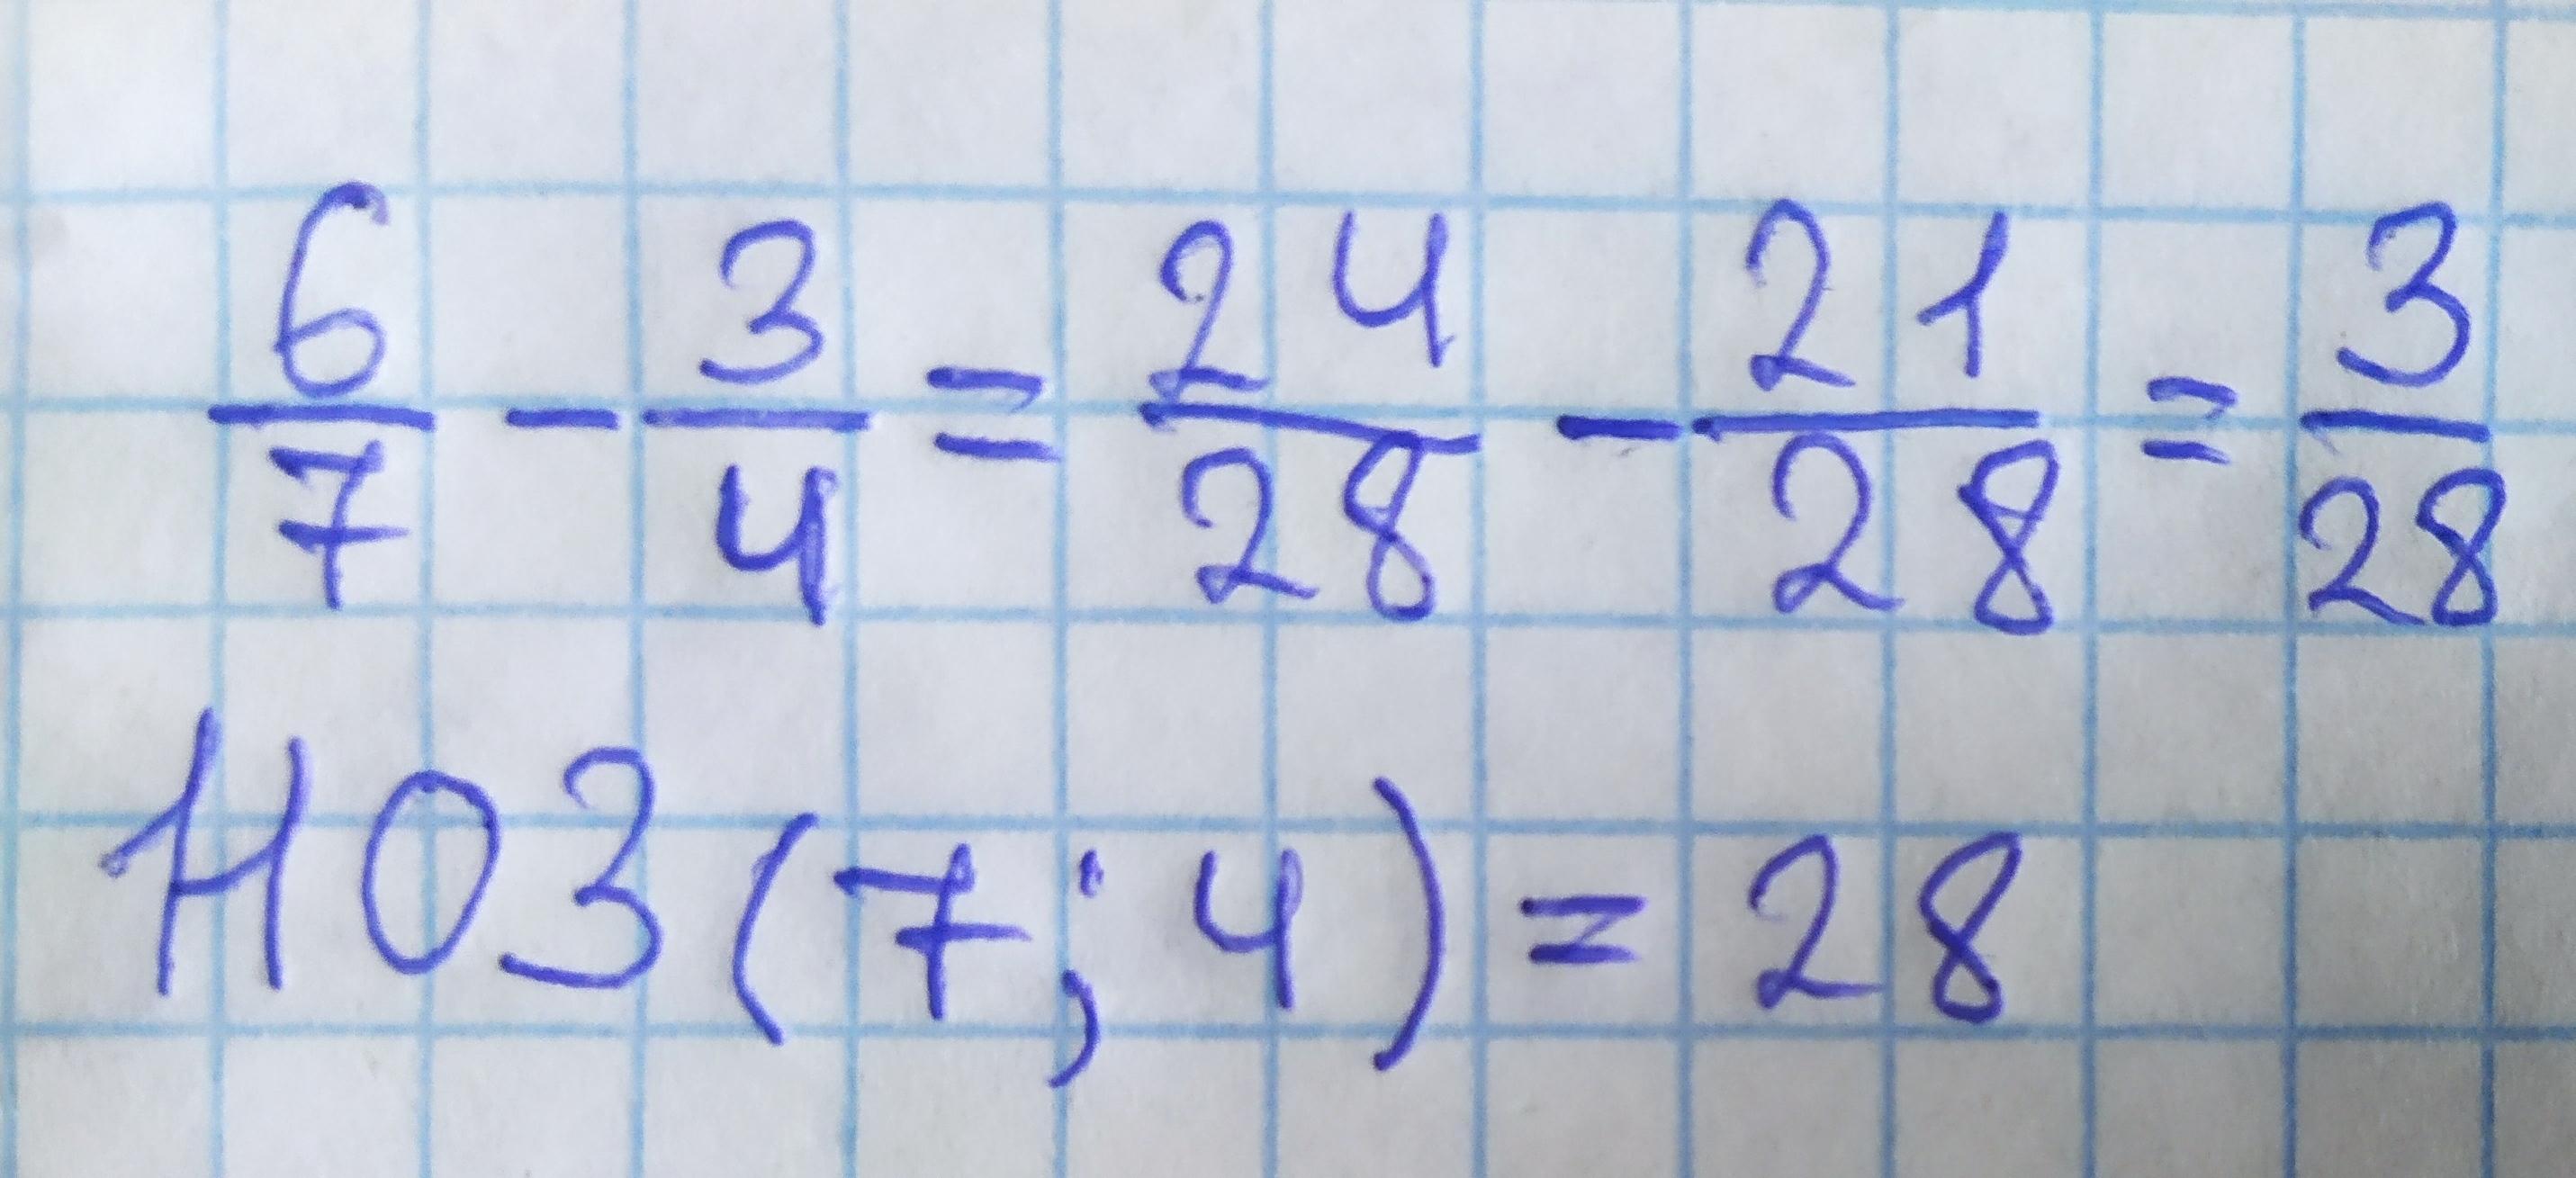 6/7 - 3/4 = 24/28 - 21/28 = 3/28
НОЗ (7; 4) = 28